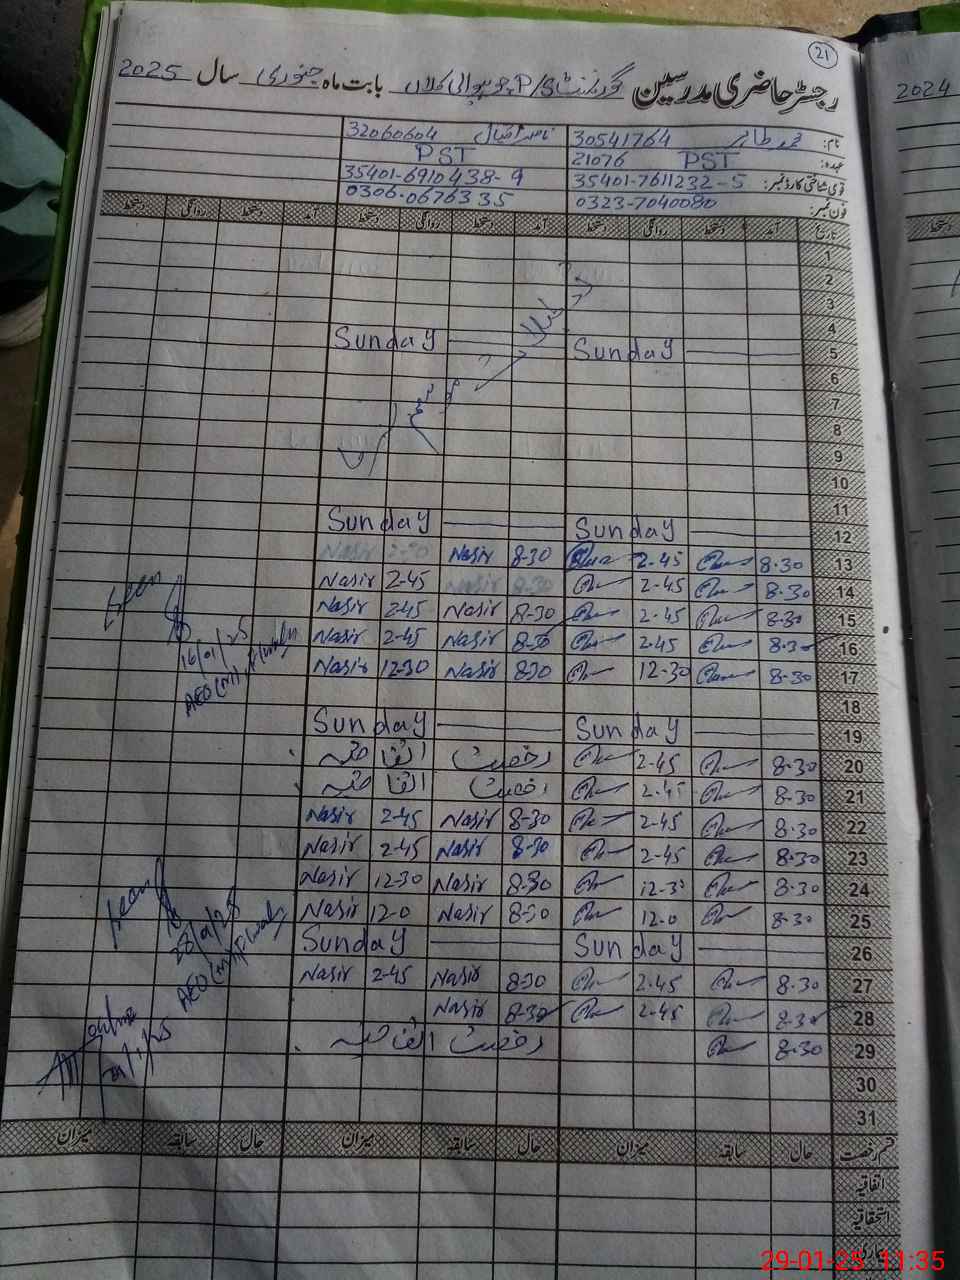 21
رجسٹر حاضری مدرسین گورنمنٹ P/S چوہیوالی کلاں بابت ماہ جنوری سال 2025
2024
نام: محمد طاہر 30541764 ناصر اقبال 32060604
عہدہ: PST 21076 PST
قومی شناختی کارڈ نمبر: 35401-7611232-5 35401-6910438-9
فون نمبر: 0323-7040080 0306-0676335
تاریخ آمد دستخط روانگی دستخط آمد دستخط روانگی دستخط آمد دستخط روانگی دستخط
1
2
3
4
5 Sunday Sunday
موسم
6
7
8
9
10
11
12 Sunday Sunday
13 8.30 2.45 8-30 Nasir Nasir
14 8.30 2.45 8-30 Nasir 2-45 Nasir
15 8.30 2.45 8-30 Nasir 2-45 Nasir
16 8.30 2.45 8-30 Nasir 2-45 Nasir
17 8.30 12-30 8-30 Nasir 12-30 Nasir
16/01/25
AEO(M)
18
19 Sunday Sunday
20 8.30 2.45 رخصت اتفاقیہ
21 8.30 2.45 رخصت اتفاقیہ
22 8.30 2-45 8-30 Nasir 2-45 Nasir
23 8.30 2-45 8-30 Nasir 2-45 Nasir
24 8.30 12-3 8-30 Nasir 12-30 Nasir
25 8.30 12-0 8-30 Nasir 12-0 Nasir
26 Sunday Sunday
27 8.30 2.45 8-30 Nasir 2-45 Nasir
28 8.30 2.45 8-30 Nasir
AEO(M)
29 8.30 رخصت اتفاقیہ
30
31
قسم رخصت حال سابقہ میزان حال سابقہ میزان حال سابقہ میزان
اتفاقیہ
استحقاقیہ
29-01-25 11:35